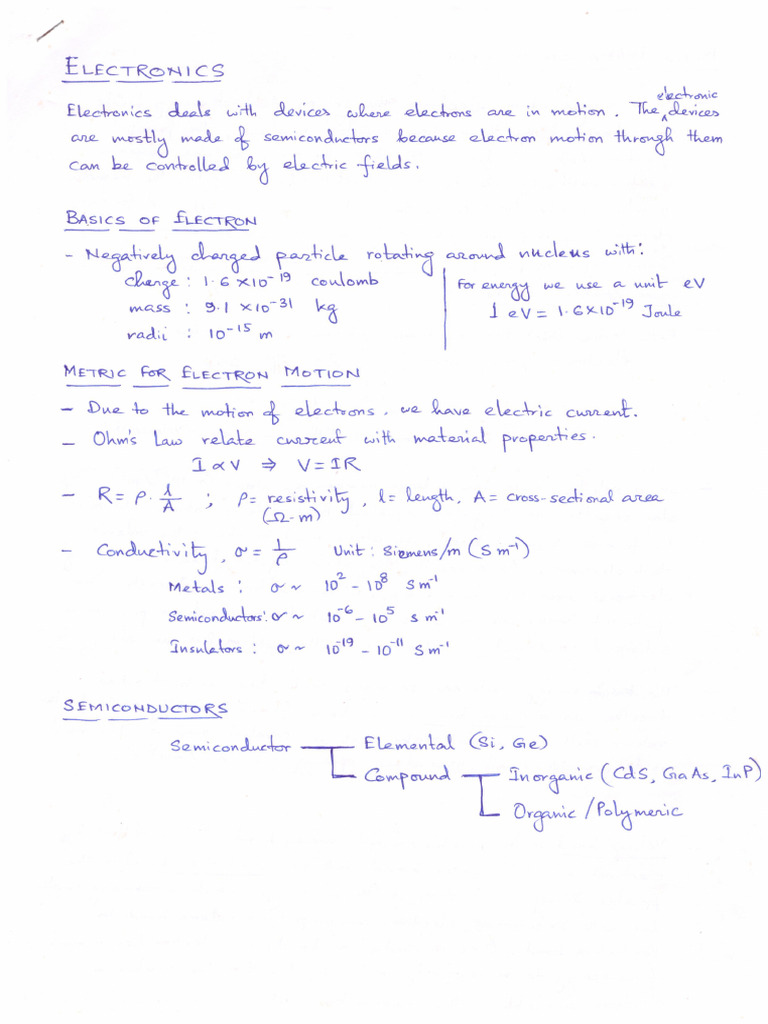 ELECTRONICS
Electronics deals with devices where electrons are in motion. The electronic devices
are mostly made of semiconductors because electron motion through them
can be controlled by electric fields.
BASICS OF ELECTRON
- Negatively charged particle rotating around nucleus with:
charge : 1.6 × 10⁻¹⁹ coulomb
mass : 9.1 × 10⁻³¹ kg
radii : 10⁻¹⁵ m
For energy we use a unit eV
1 eV = 1.6 × 10⁻¹⁹ Joule
METRIC FOR ELECTRON MOTION
- Due to the motion of electrons, we have electric current.
- Ohm's Law relate current with material properties.
I ∝ V ⇒ V = IR
- R = ρ. l/A ; ρ = resistivity, l = length, A = cross-sectional area
(Ω-m)
- Conductivity, σ = 1/ρ Unit : Siemens/m (S m⁻¹)
Metals : σ ~ 10² - 10⁸ S m⁻¹
Semiconductors : σ ~ 10⁻⁶ - 10⁵ S m⁻¹
Insulators : σ ~ 10⁻¹⁹ - 10⁻¹¹ S m⁻¹
SEMICONDUCTORS
Semiconductor Elemental (Si, Ge)
Compound Inorganic (CdS, GaAs, InP)
Organic / Polymeric